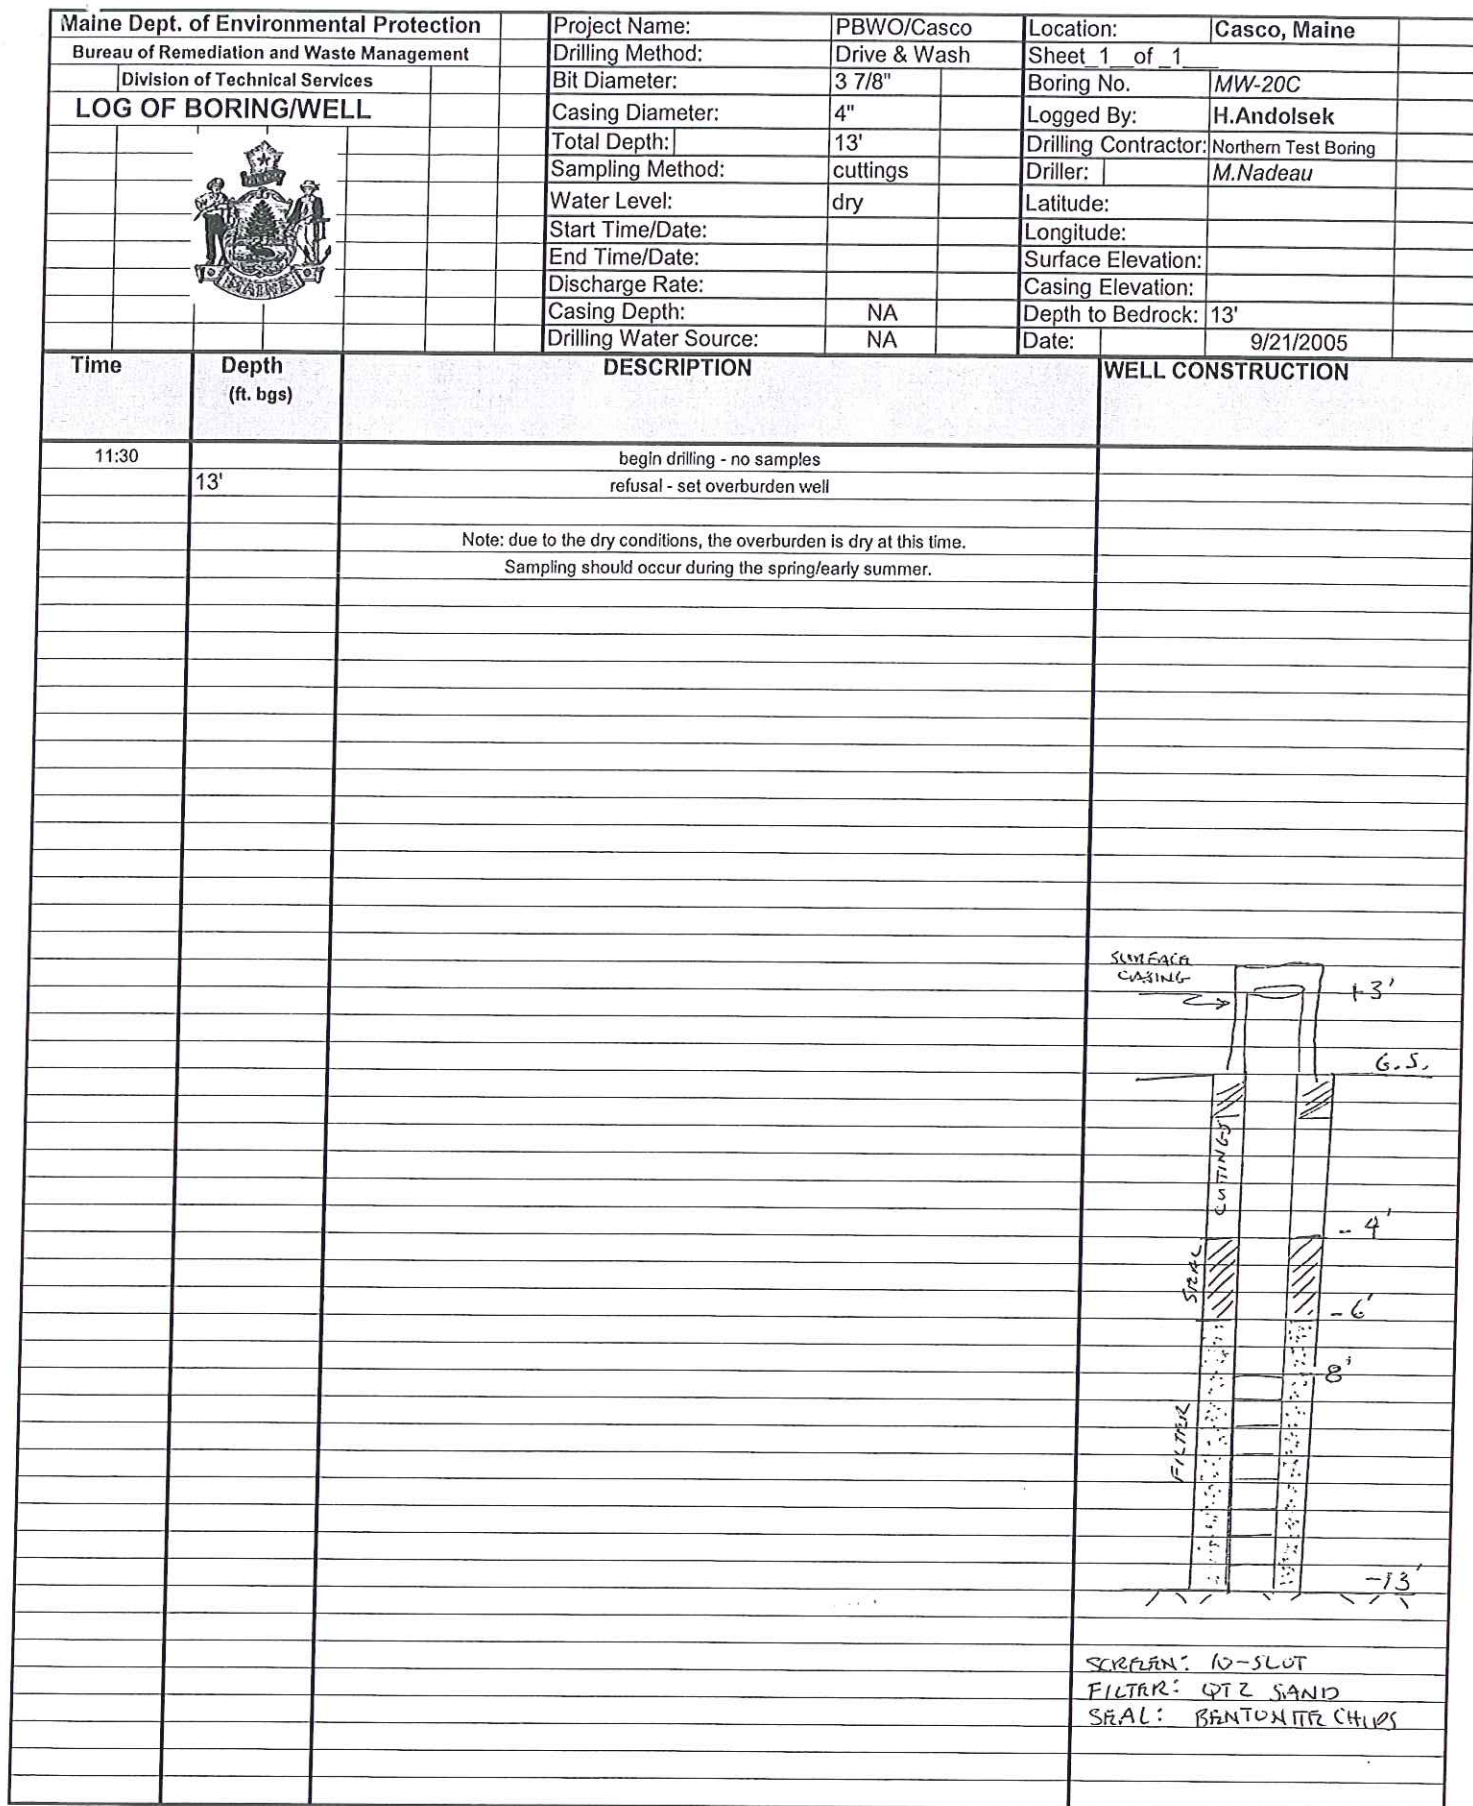 Maine Dept. of Environmental Protection
Bureau of Remediation and Waste Management
Division of Technical Services
LOG OF BORING/WELL
MAINE
Project Name: PBWO/Casco
Drilling Method: Drive & Wash
Bit Diameter: 3 7/8"
Casing Diameter: 4"
Total Depth: 13'
Sampling Method: cuttings
Water Level: dry
Start Time/Date:
End Time/Date:
Discharge Rate:
Casing Depth: NA
Drilling Water Source: NA
Location: Casco, Maine
Sheet_1_ of _1_
Boring No. MW-20C
Logged By: H.Andolsek
Drilling Contractor: Northern Test Boring
Driller: M.Nadeau
Latitude:
Longitude:
Surface Elevation:
Casing Elevation:
Depth to Bedrock: 13'
Date: 9/21/2005
Time Depth (ft. bgs) DESCRIPTION WELL CONSTRUCTION
11:30 begin drilling - no samples
13' refusal - set overburden well
Note: due to the dry conditions, the overburden is dry at this time.
Sampling should occur during the spring/early summer.
SURFACE
CASING
+3'
G.S.
CUTTINGS
- 4'
SEAL
- 6'
8'
FILTER
-13'
SCREEN: 10-SLOT
FILTER: QTZ SAND
SEAL: BENTONITE CHIPS